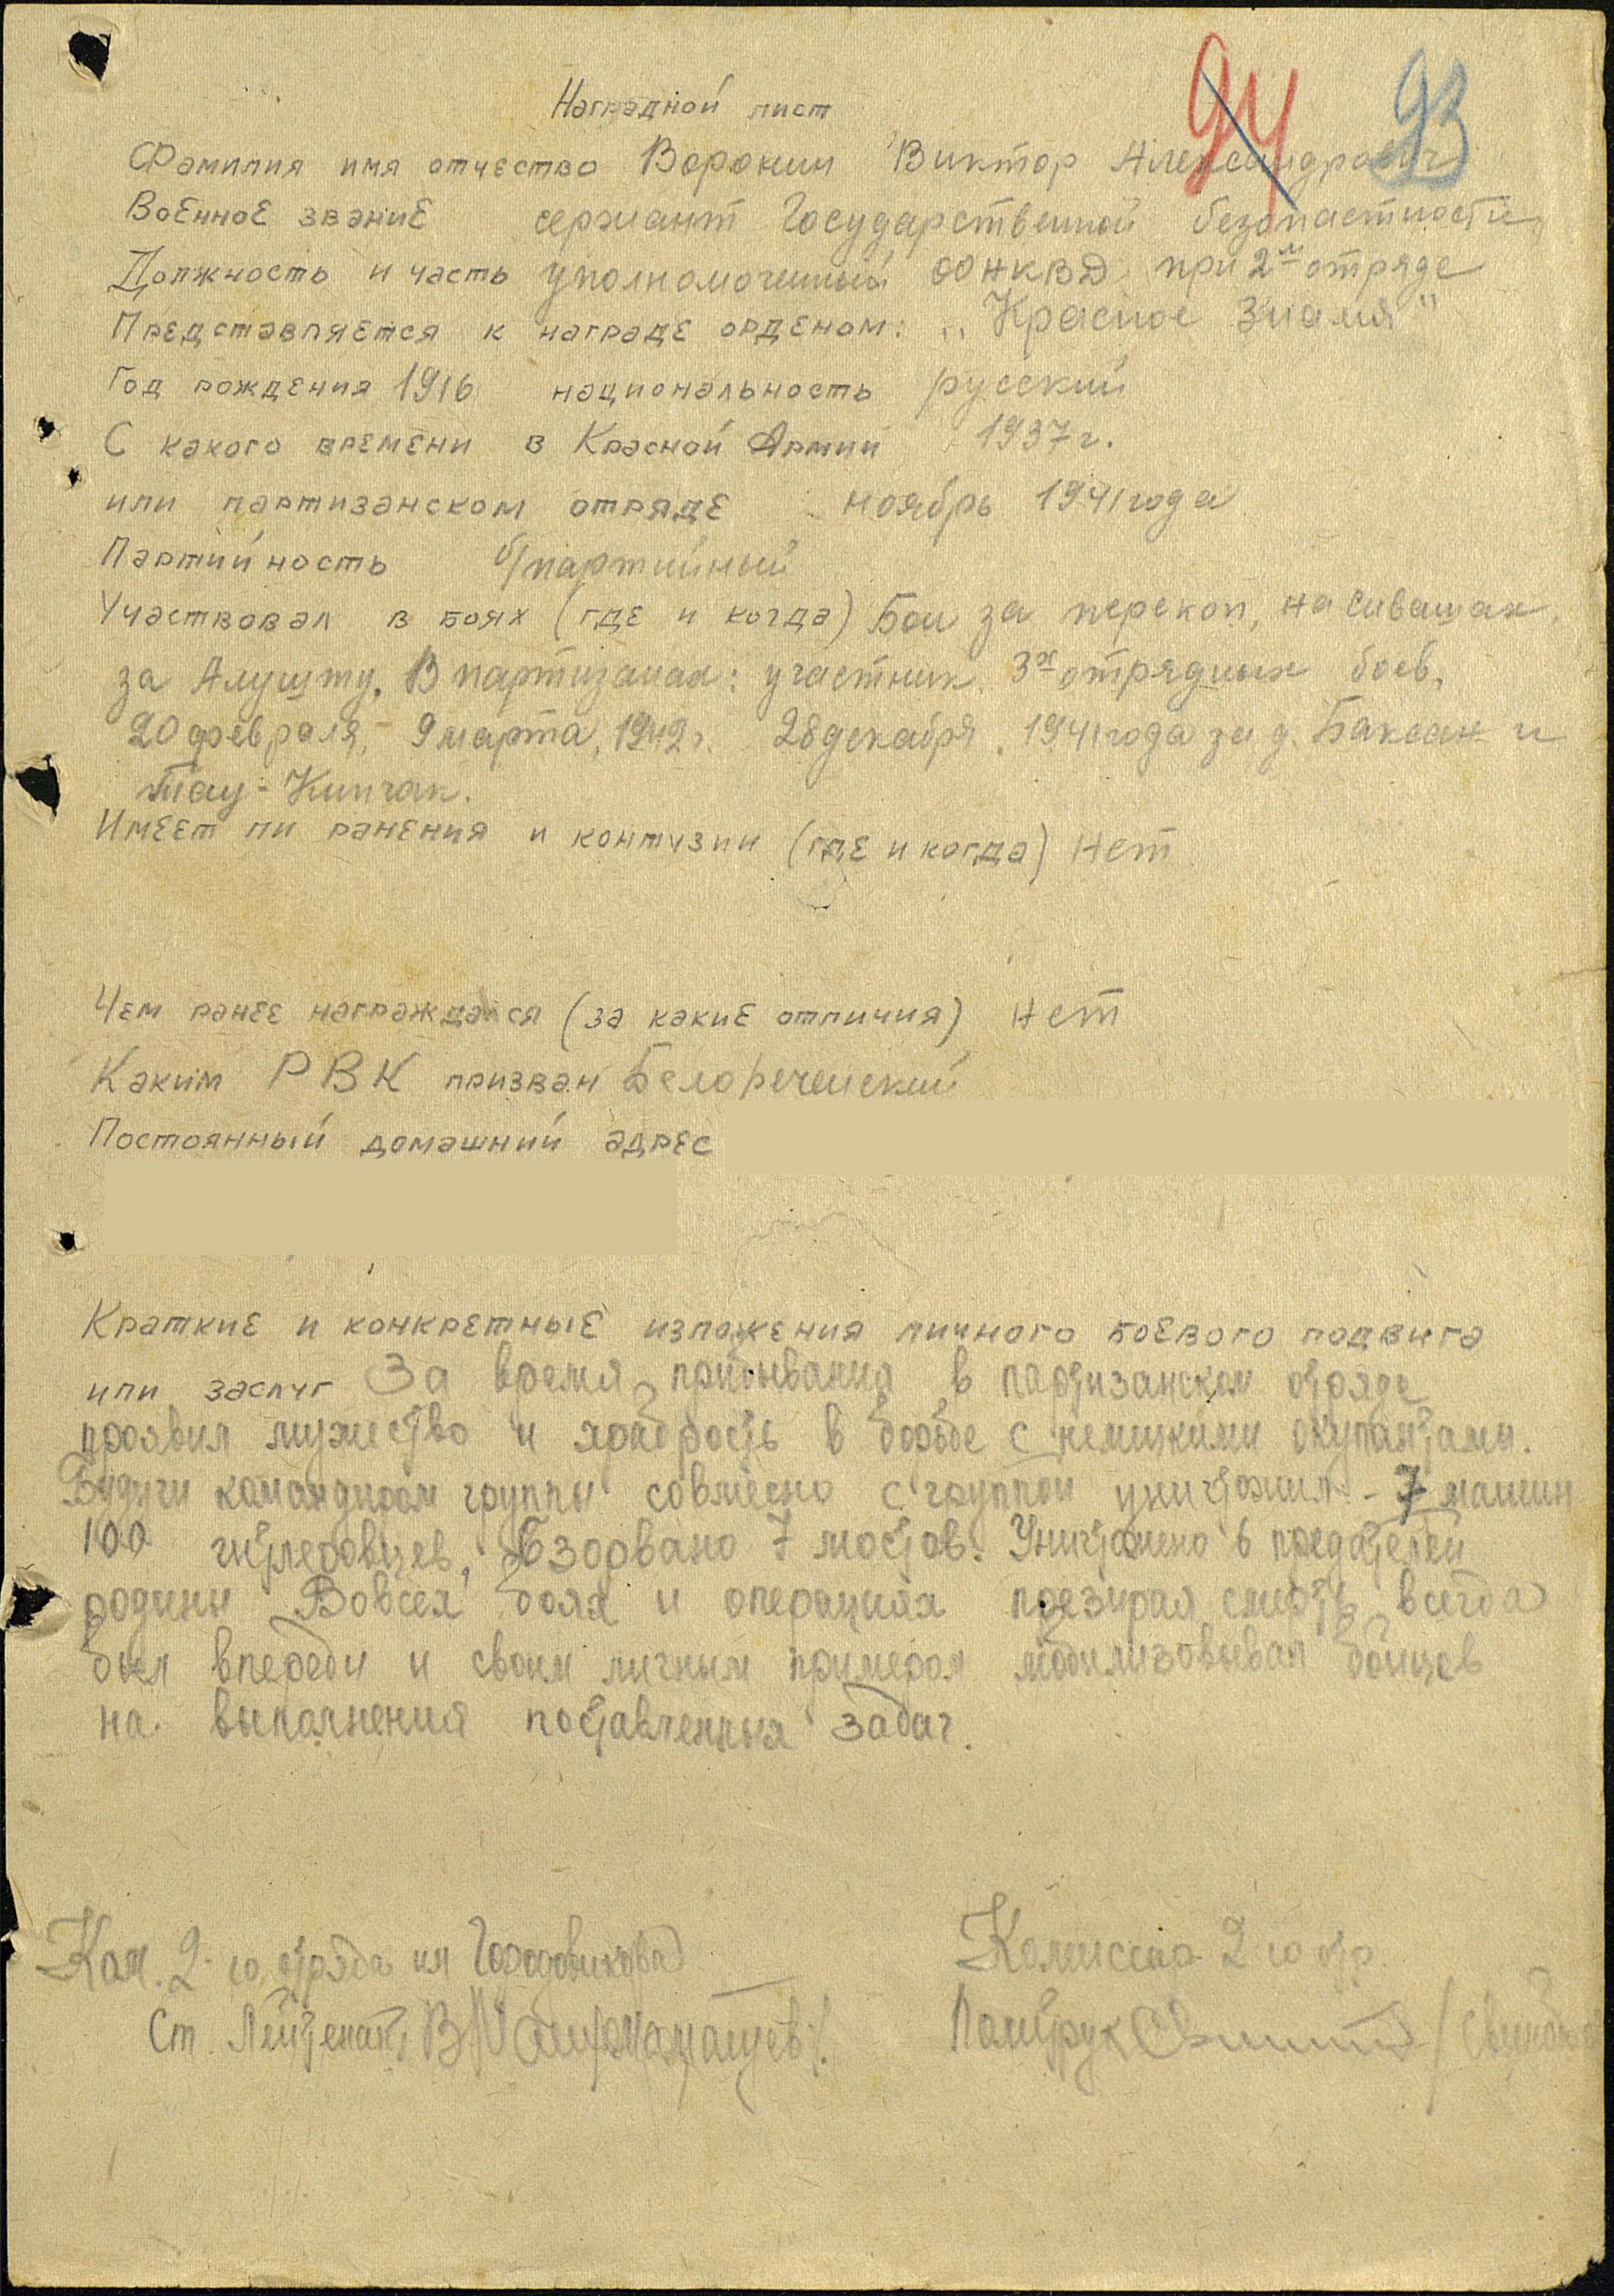 94 93
Наградной лист
Фамилия имя отчество Воронин Виктор Александрович
Военное звание сержант Государственной безопастности
Должность и часть уполномоченный ООНКВД при 2м отряде
Представляется к награде орденом: „Красное Знамя"
Год рождения 1916 национальность русский
С какого времени в Красной Армии 1937г.
или партизанском отряде ноябрь 1941 года
Партийность б/партийный
Участвовал в боях (где и когда) Бои за перекоп, на Сивашах,
за Алушту. В партизанах: участник 3х отрядных боев,
20 февраля, 9 марта, 1942г. 28 декабря 1941 года за д. Баксан и
Тау-Кипчак.
Имеет ли ранения и контузии (где и когда) Нет
Чем ранее награждался (за какие отличия) Нет
Каким РВК призван Белореченский
Постоянный домашний адрес
Краткие и конкретные изложения личного боевого подвига
или заслуг За время прибывания в партизанском отряде
проявил мужество и храбрость в борьбе с немецкими окупантами.
Будучи командиром группы совместно с группой уничтожил - 7 машин
100 гитлеровцев, Взорвано 7 мостов. Уничтожено 6 предателей
родины Вовсех боях и операциях презирая смерть всегда
был впереди и своим личным примером мобилизовывал бойцов
на выполнения поставленных задач.
Ком. 2-го отряда им Городовикова Комиссар 2го отр.
Ст. Лейтенант Политрук